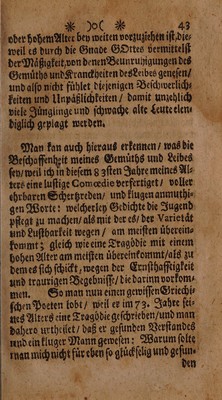 43
oder hohem Alter bey weiten vorzuziehen ist, die-
weil es durch die Gnade GOttes vermittelst
der Mäßigkeit, von denen Beunruhigungen des
Gemüths und Kranckheiten des Leibes genesen/
und also nicht fühlet diejenigen Beschwerlich-
keiten und Unpäßlichkeiten / damit unzehlich
viele Jünglinge und schwache alte Leute elen-
diglich geplagt werden.
Man kan auch hieraus erkennen / was die
Beschaffenheit meines Gemüths und Leibes
sey / weil ich in diesem 83sten Jahre meines Al-
ters eine lustige Comœdie verfertiget / voller
ehrbaren Schertzreden / und klugen anmuthi-
gen Worte: welcherley Gedichte die Jugend
pflegt zu machen / als mit der es / der Varietät
und Lustbarkeit wegen / am meisten überein-
kommt; gleich wie eine Tragödie mit einem
hohen Alter am meisten übereinkommt / als zu
dem es sich schickt / wegen der Ernsthafftigkeit
und traurigen Begebnisse / die darinn vorkom-
men. So man nun einen gewissen Griechi-
schen Poeten lobt / weil er im 73. Jahre sei-
nes Alters eine Tragödie geschrieben / und man
dahero urtheilet / daß er gesunden Verstandes
und ein kluger Mann gewesen: Warum solte
man mich nicht für eben so glückselig und gesun-
den